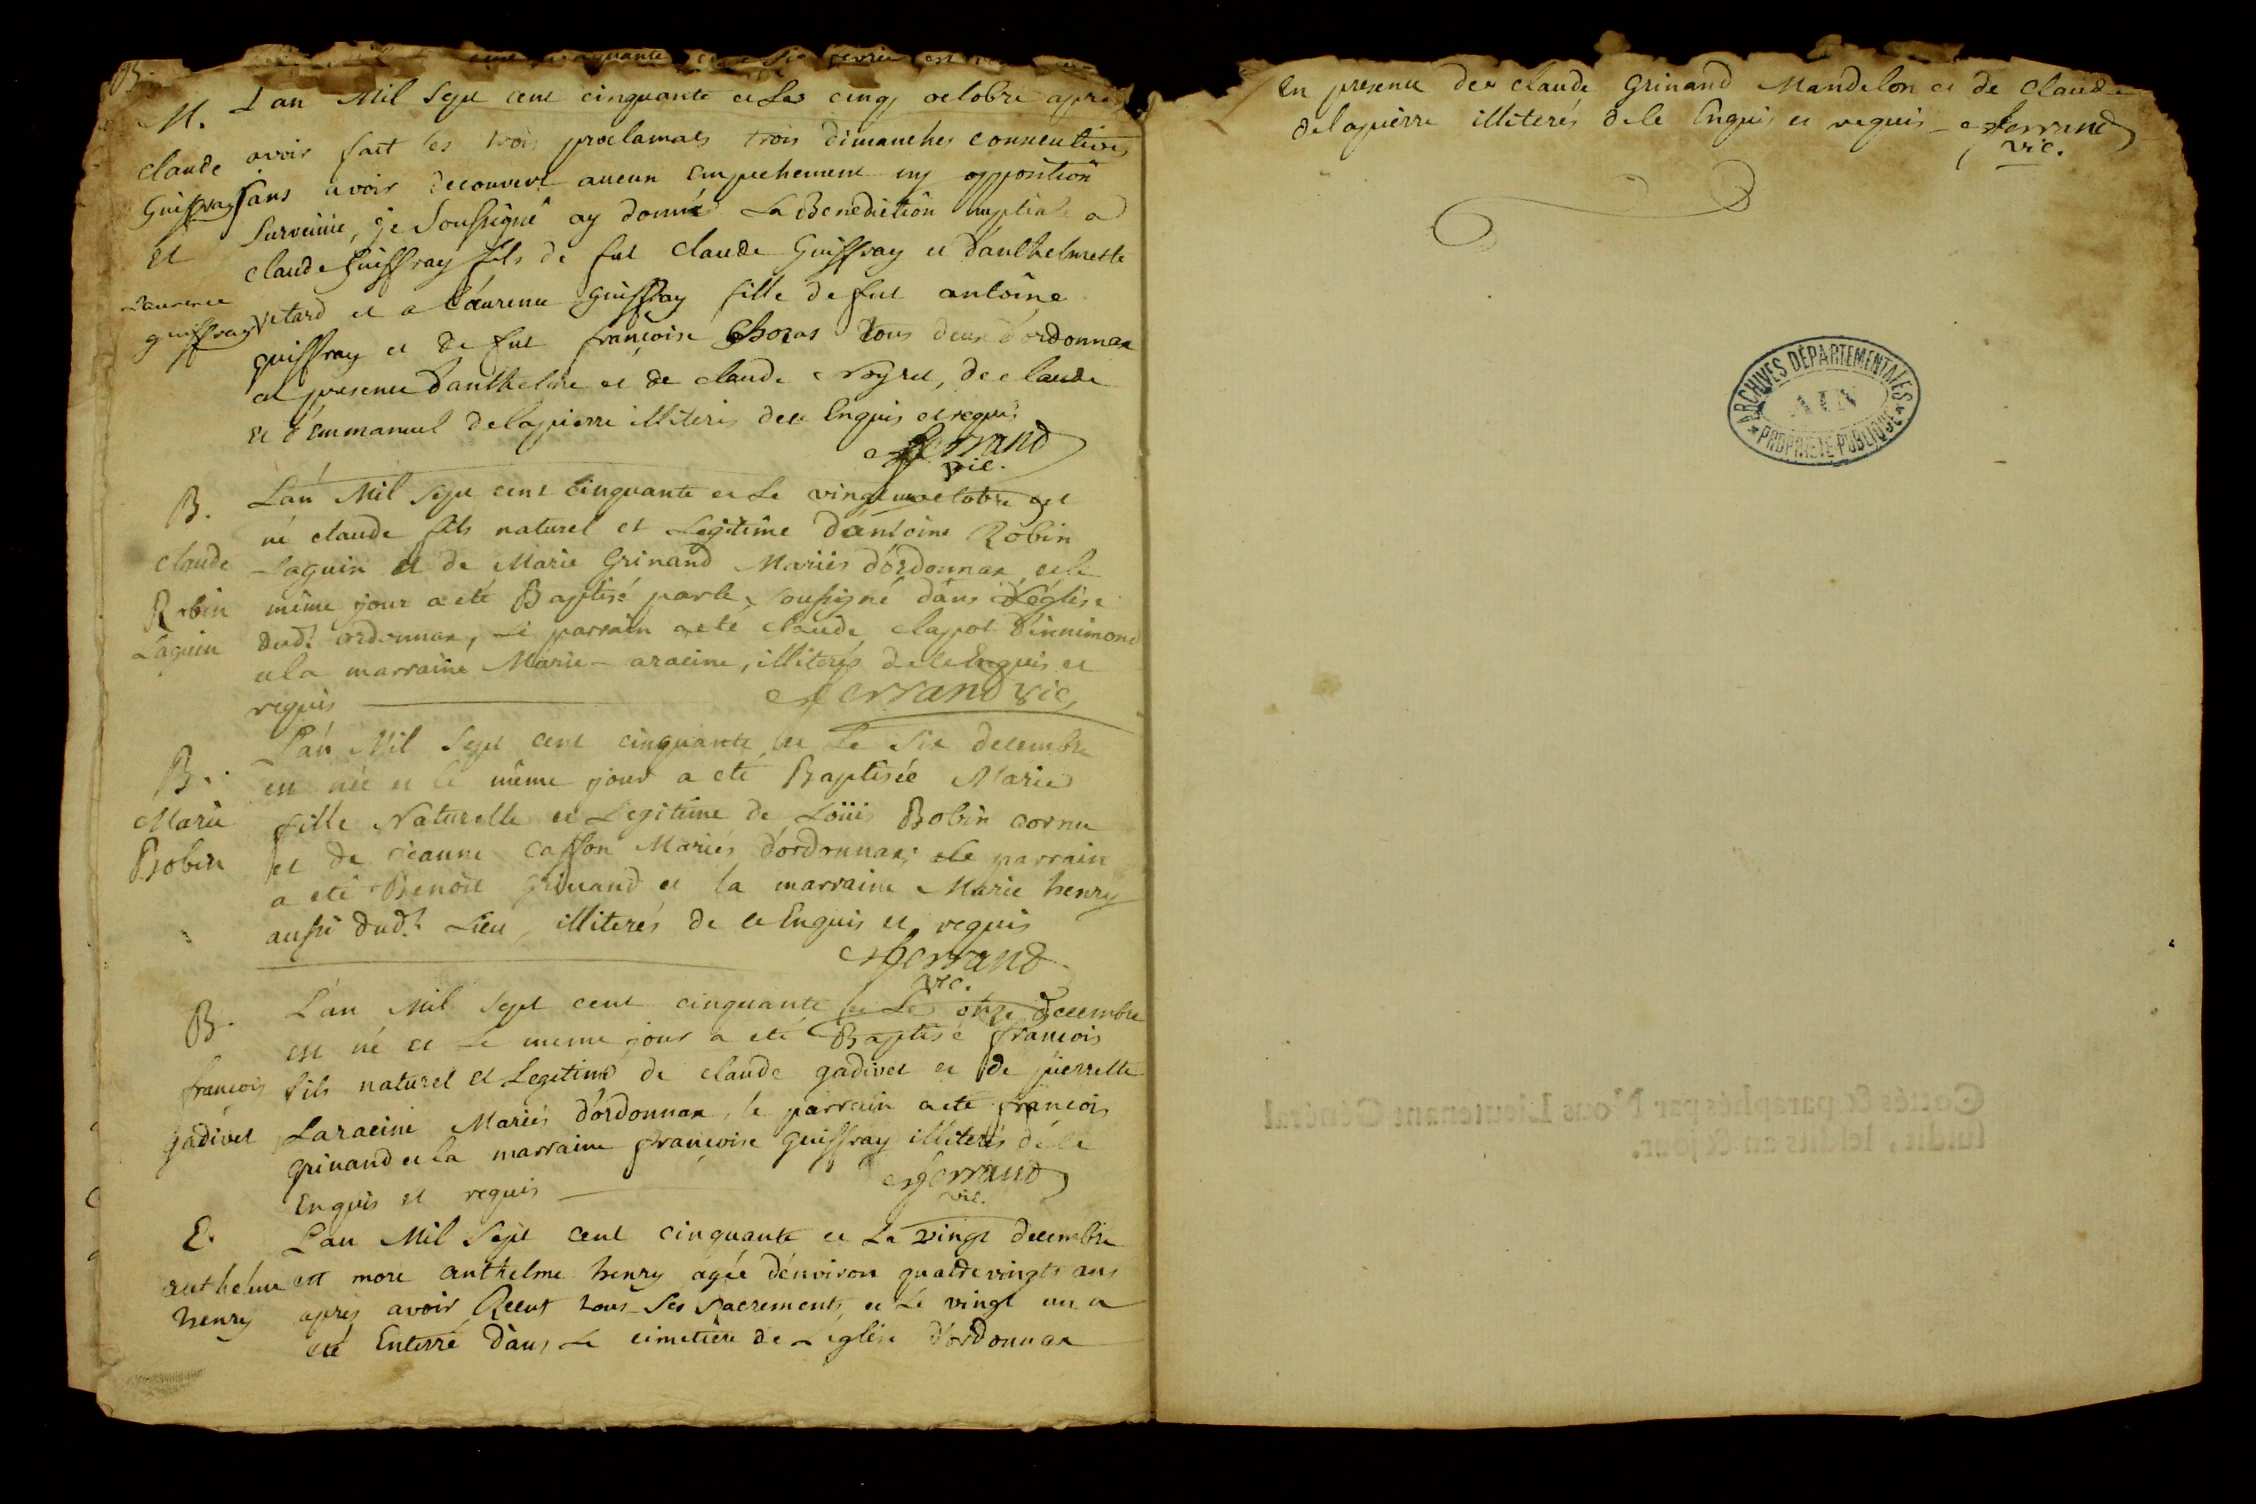 B.
cinquante
M. L'an Mil Sept cent cinquante et Le cinq octobre après
claude avoir fait les trois proclamaōs trois dimanches consecutives
Guiffray sans avoir decouvert aucun empechement ny opposition
et survenüe, je soussigné ay donné La Benediction nuptiale a
claude Guiffray fils de fut claude Guiffray et d'anthelmette
Laurence
guiffray
et a Laurence guiffray fille de fut antoine
guiffray et de fut françoise tous deux d'ordonnax
en presence d'anthelme et de claude de claude
et d'Emmanuel delapierre illiterés de ce Enquis et requis
ferrand
vic.
B. L'an Mil Sept cent cinquante et Le vingt octobre est
né claude fils naturel et Legitime d'antoine Robin
claude Laguin et de Marie Grinand Mariés d'ordonnax et le
Robin même jour a eté Baptisé par le soussigné dans L'église
Laguin dud.t ordonnax, Le parrain a eté claude clapot d'innimond
et la marraine Marie aracine, illiterés de ce Enquis et
requis ferrand vic.
B. L'an Mil Sept cent cinquante et Le Six decembre
est née et le même jour a eté Baptisée Marie
Marie fille Naturelle et Legitime de Loüis Bobin cornu
Bobin et de jeanne casson Mariés d'ordonnax; Le parrain
a eté Benoit grinand et la marraine Marie henry
aussi dud.t Lieu, illiterés de ce Enquis et requis
ferrand
vic.
B. L'an Mil Sept cent cinquante et Le onze decembre
est né et Le meme jour a eté Baptisé françois
francois fils naturel et Legetime de claude gadivet et de pierrette
gadivet Laracine Mariés d'ordonnax, le parrain a eté françois
grinand et la marraine françoise guiffray illiterés de ce
Enquis et requis ferrand
vic.
E. L'an Mil Sept cent cinquante et Le vingt decembre
anthelme est mort anthelme henry agée d'environ quatrevingts ans
henry après avoir Recut tous Ses Sacrements et Le vingt un a
eté Enterré dans Le cimetière de L'église d'ordonnax
En presence de claude Grinand Mandelon et de claude
delapierre illiterés de ce Enquis et requis ferrand
vic.
ARCHIVES DÉPARTEMENTALES
AIN
PROPRIÉTÉ PUBLIQUE
Cottés & paraphés par Nous Lieutenant Général
susdit, lesdits an & jour.